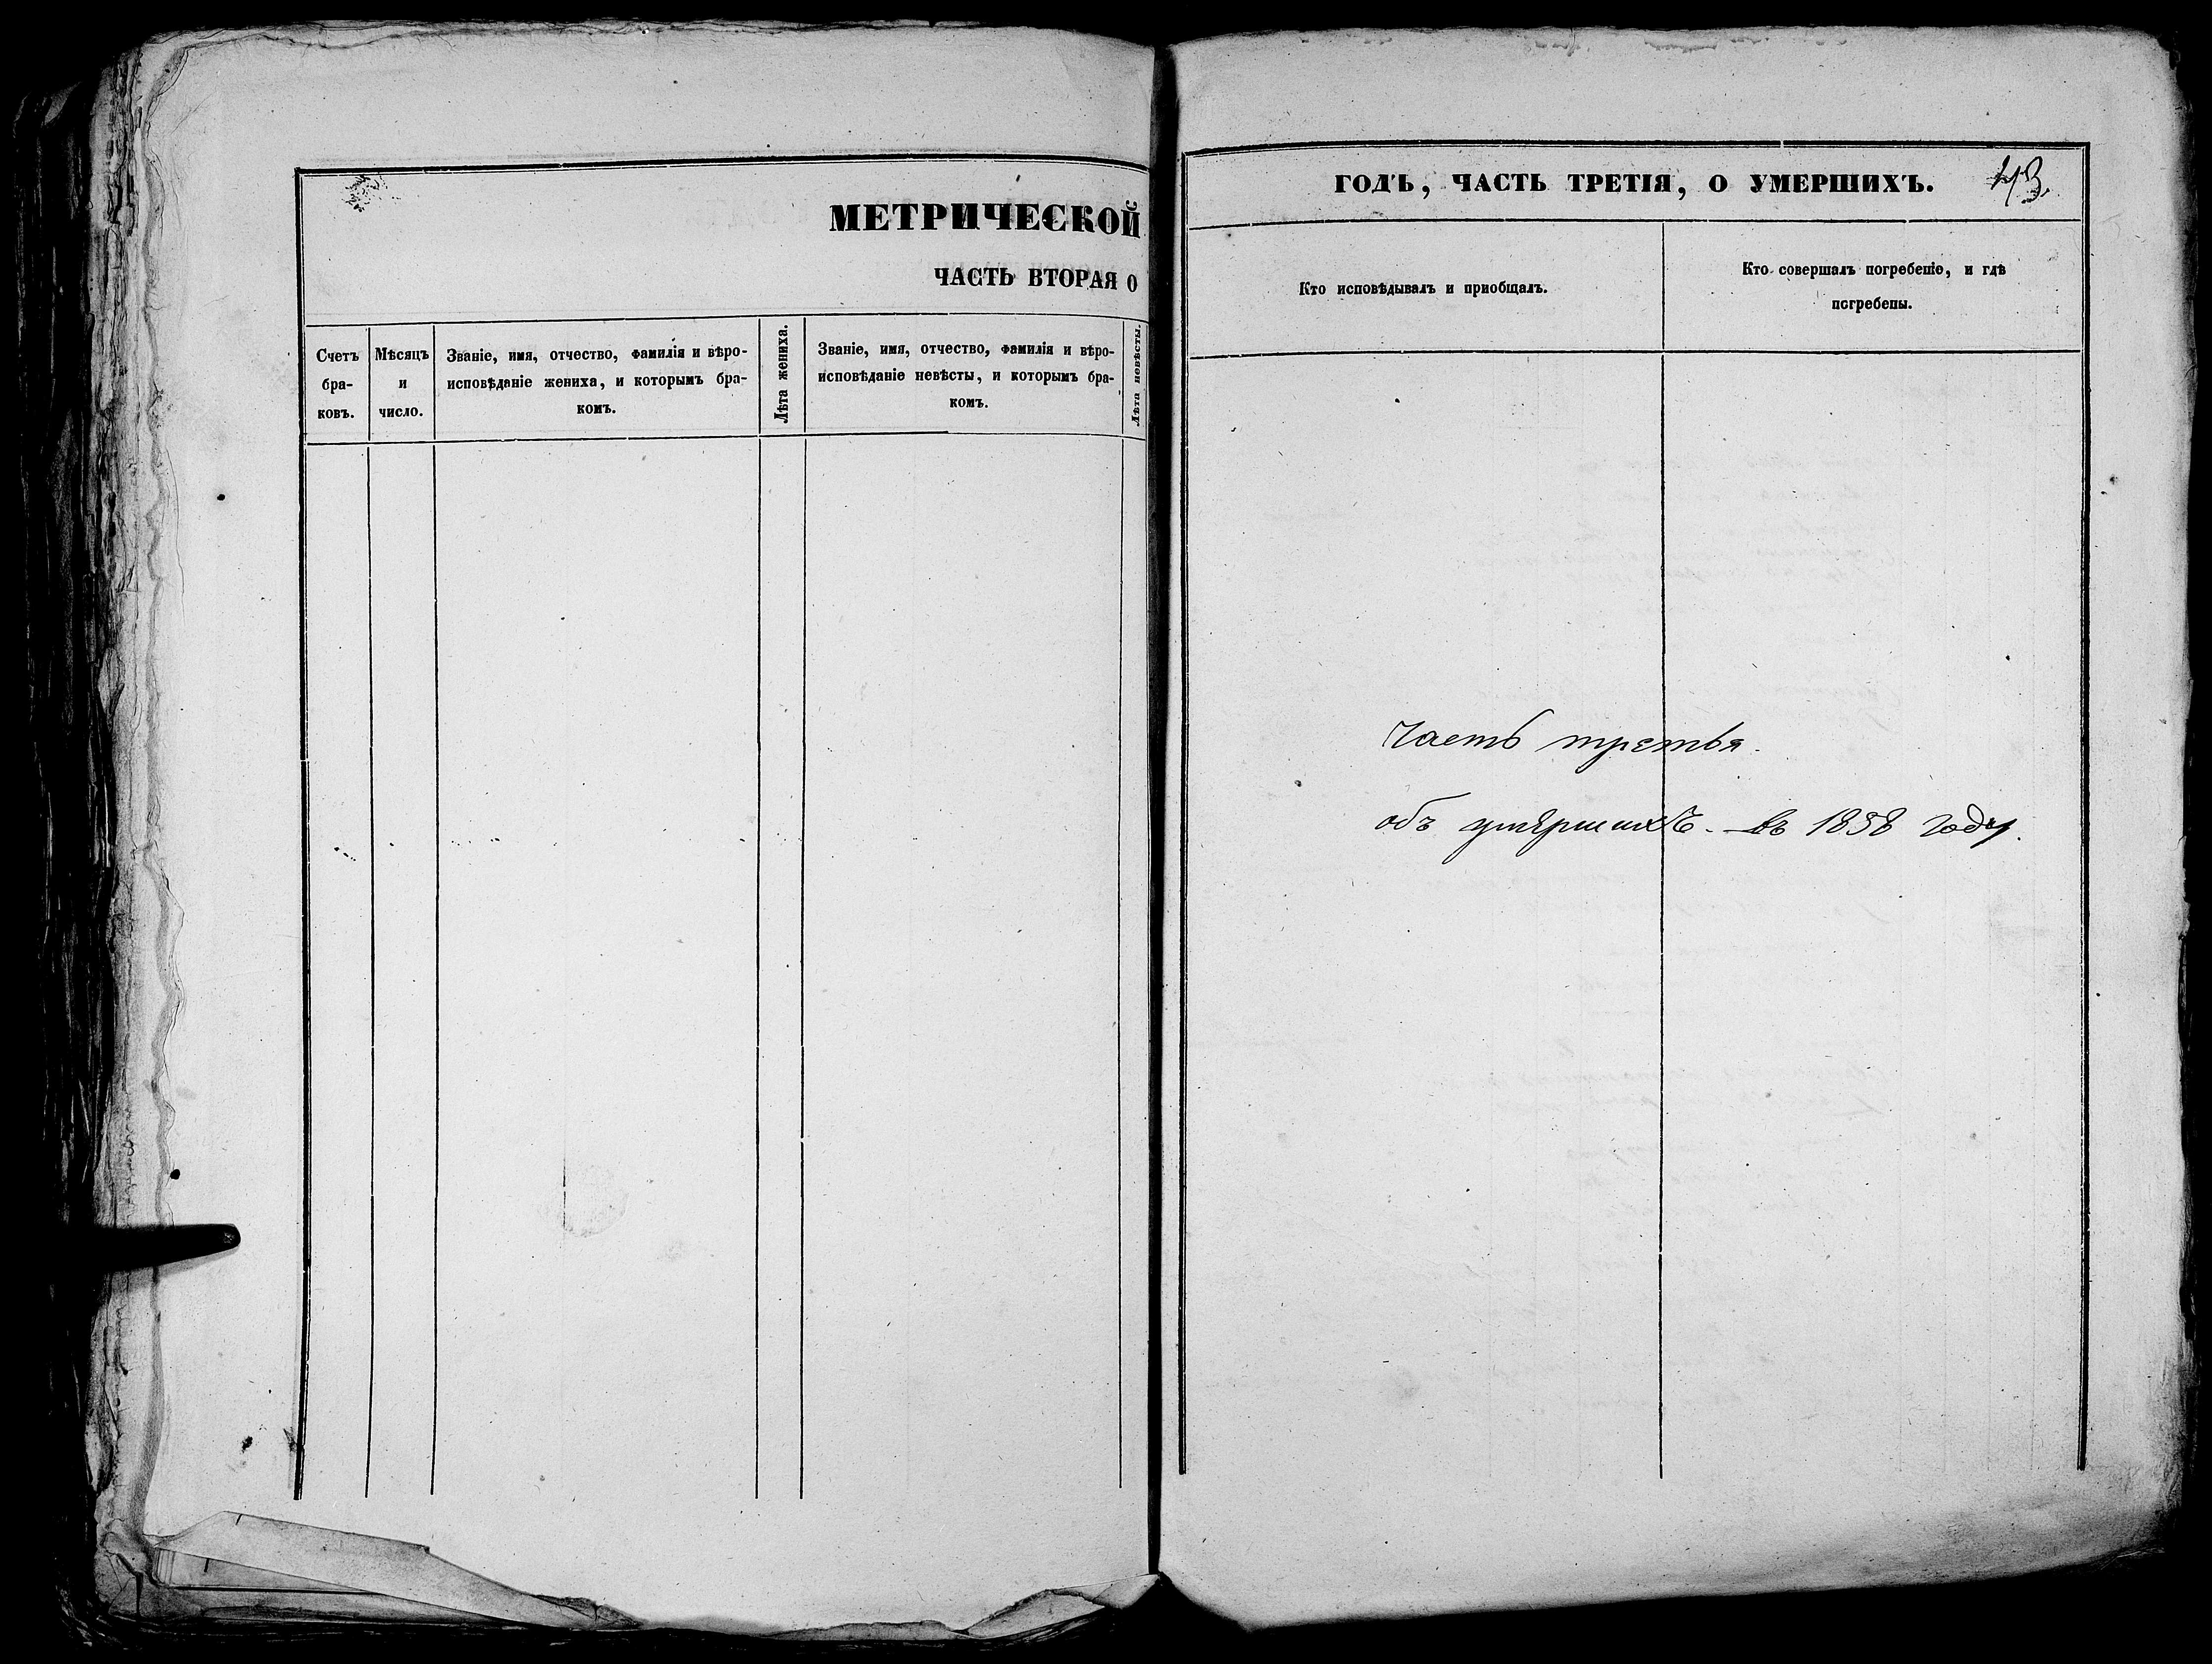 МЕТРИЧЕСКОЙ
ЧАСТЬ ВТОРАЯ О
Счетъ бра-ковъ.
Мѣсяцъ и число.
Званіе, имя, отчество, фамилія и вѣро-
исповѣданіе жениха, и которымъ бра-
комъ.
Лѣта жениха.
Званіе, имя, отчество, фамилія и вѣро-
исповѣданіе невѣсты, и которымъ бра-
комъ.
Лѣта невѣсты.
ГОДЪ, ЧАСТЬ ТРЕТІЯ, О УМЕРШИХЪ.
43.
Кто исповѣдывалъ и пріобщалъ.
Кто совершалъ погребеніе, и гдѣ
погребены.
Часть третья.
объ умершихъ. въ 1858 году.